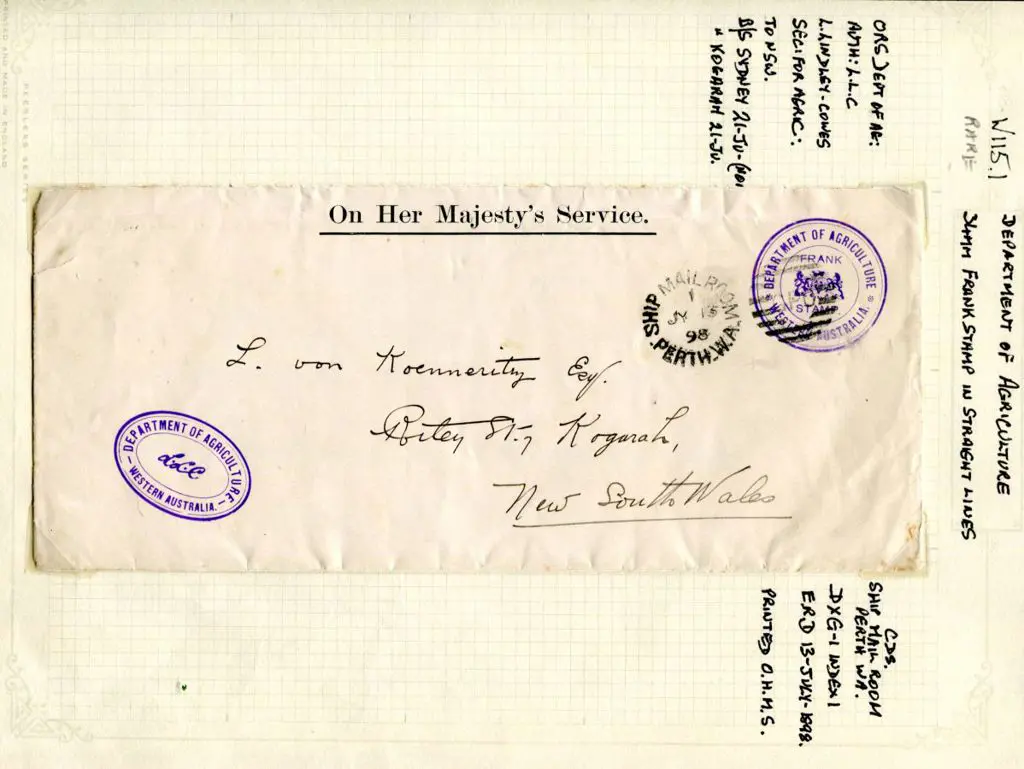 ORS DEPT OF AG:
AUTH: L.L.C
L. LINDLEY-COWES
SEC: FOR AGRIC:
TO NSW.
B/S SYDNEY 21-JU-
" KOGARAH 21-JU.
W115.1
RARE
DEPARTMENT OF AGRICULTURE
34MM FRANK STAMP IN STRAIGHT LINES
PRINTED AND MADE IN ENGLAND
On Her Majesty's Service.
DEPARTMENT OF AGRICULTURE
FRANK
STAMP
WESTERN AUSTRALIA.
SHIP MAIL ROOM
1
JY 13
98
PERTH. W.A.
L. von Koenneritz Esq.
Riley St., Kogarah,
New South Wales
DEPARTMENT OF AGRICULTURE
LLC
WESTERN AUSTRALIA.
CDS.
SHIP MAIL ROOM
PERTH WA.
DXG-1 INDEX 1
ERD 13-JULY-1898.
PRINTED O.H.M.S.